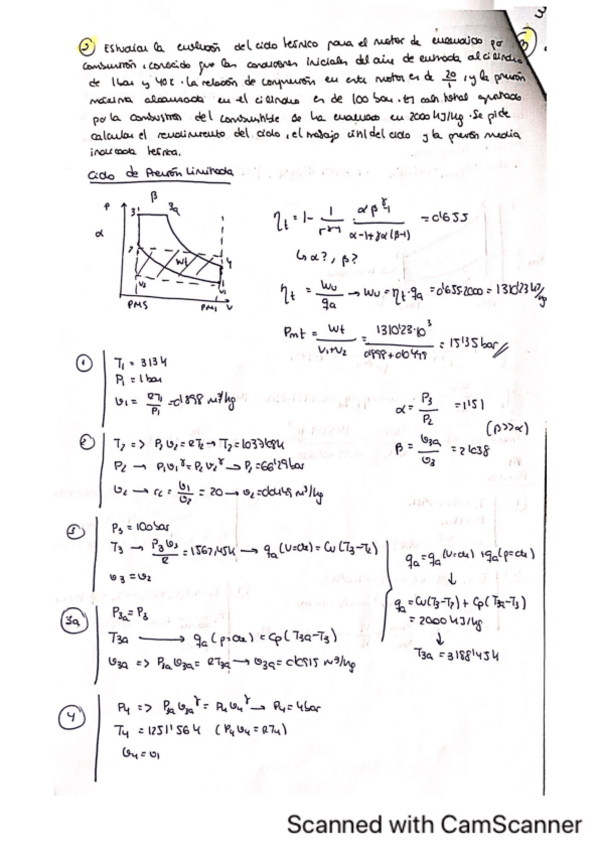 ② Estudiar la evolución del ciclo teórico para el motor de encendido por
combustión, conocido que las condiciones iniciales del aire de entrada al cilindro
de 1 bar y 40℃. La relación de compresión en este motor es de 20/1, y la presión
máxima alcanzada en el cilindro es de 100 bar. El calor total aportado
por la combustión del combustible se ha evaluado en 2000 kJ/kg. Se pide
calcular el rendimiento del ciclo, el trabajo útil del ciclo y la presión media
indicada teórica.
Ciclo de Presión Limitada
P β
3 3a
α
2 Wt 4
v2 v1
PMS PMI V
ηt = 1 - 1/r^(γ-1) · (αβ^γ - 1)/(α-1+γα(β-1)) = 0'655
↳ α?, β?
ηt = Wu/qa → Wu = ηt·qa = 0'655·2000 = 1310'23 kJ/kg
Pmt = Wt/(V1+V2) = 1310'23·10³/(0'898+0'0449) = 15'35 bar
α = P3/P2 = 1'51
(β>>α)
β = v3a/v3 = 2'038
① T1 = 313 K
P1 = 1 bar
v1 = RT1/P1 = 0'898 m³/kg
② T2 => P2v2 = RT2 → T2 = 1037'68 K
P2 → P1v1^γ = P2v2^γ → P2 = 66'29 bar
v2 → rc = v1/v2 = 20 → v2 = 0'0449 m³/kg
③ P3 = 100 bar
T3 → P3v3/R = 1567'45 K → qa (V=cte) = Cv (T3-T2)
v3 = v2
3a P3a = P3
T3a → qa (p=cte) = Cp (T3a-T3)
v3a => P3a v3a = RT3a → v3a = 0'0915 m³/kg
qa = qa (v=cte) + qa (p=cte)
↓
qa = Cv(T3-T2) + Cp (T3a-T3)
= 2000 kJ/kg
↓
T3a = 3188'45 K
④ P4 => P3a v3a^γ = P4 v4^γ → P4 = 4 bar
T4 = 1251'56 K (P4 v4 = RT4)
v4 = v1
Scanned with CamScanner